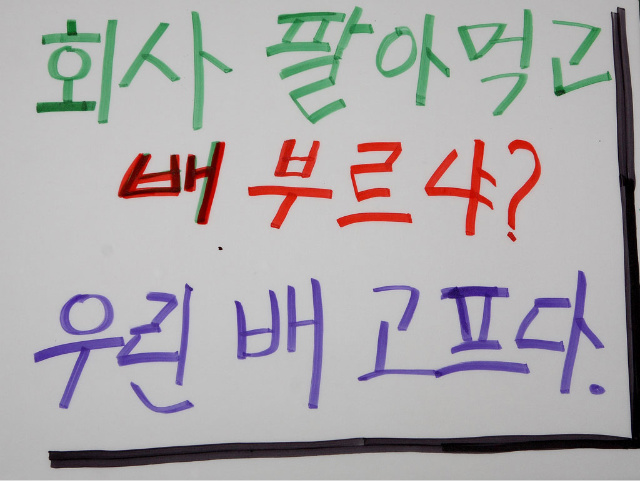 회사 팔아먹고
배 부르냐?
우린 배 고프다.